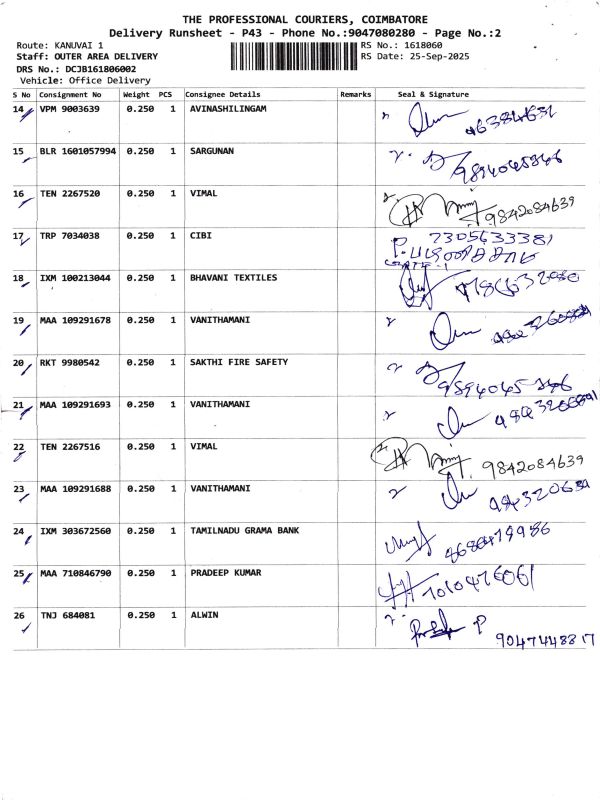 THE PROFESSIONAL COURIERS, COIMBATORE
Delivery Runsheet - P43 - Phone No.:9047080280 - Page No.:2
Route: KANUVAI 1 RS No.: 1618060
Staff: OUTER AREA DELIVERY RS Date: 25-Sep-2025
DRS No.: DCJB161806002
Vehicle: Office Delivery
S No Consignment No Weight PCS Consignee Details Remarks Seal & Signature
14 VPM 9003639 0.250 1 AVINASHILINGAM
15 BLR 1601057994 0.250 1 SARGUNAN 9894045346
16 TEN 2267520 0.250 1 VIMAL 9842084639
17 TRP 7034038 0.250 1 CIBI 7305633381
18 IXM 100213044 0.250 1 BHAVANI TEXTILES
19 MAA 109291678 0.250 1 VANITHAMANI
20 RKT 9980542 0.250 1 SAKTHI FIRE SAFETY 9894045346
21 MAA 109291693 0.250 1 VANITHAMANI
22 TEN 2267516 0.250 1 VIMAL 9842084639
23 MAA 109291688 0.250 1 VANITHAMANI
24 IXM 303672560 0.250 1 TAMILNADU GRAMA BANK
25 MAA 710846790 0.250 1 PRADEEP KUMAR
26 TNJ 684081 0.250 1 ALWIN 9047448817